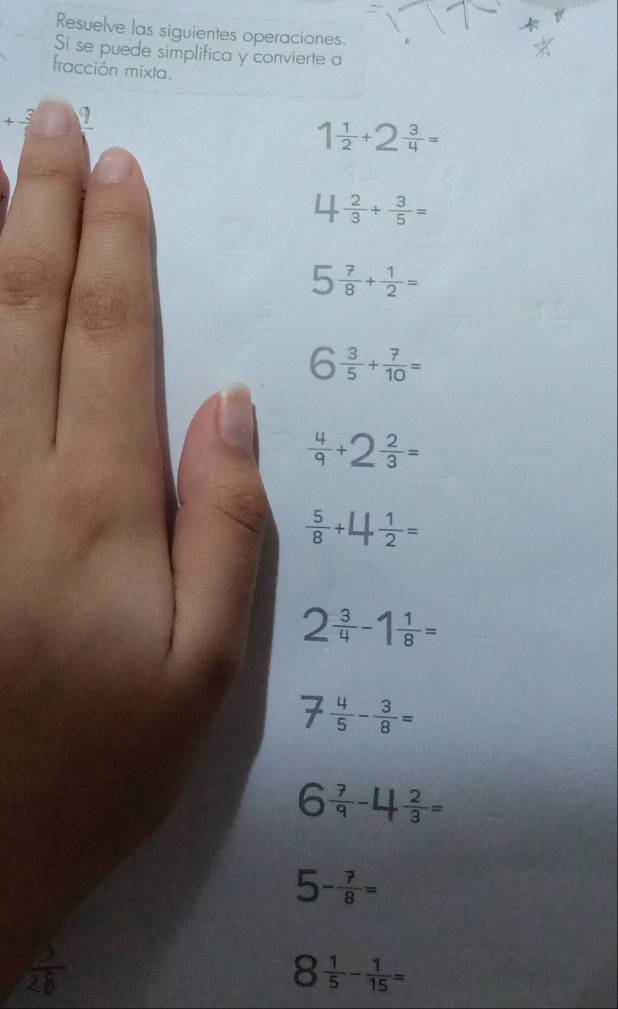 Resuelve las siguientes operaciones.
Si se puede simplifica y convierte a
fracción mixta.
1 1/2 + 2 3/4 =
4 2/3 + 3/5 =
5 7/8 + 1/2 =
6 3/5 + 7/10 =
4/9 + 2 2/3 =
5/8 + 4 1/2 =
2 3/4 - 1 1/8 =
7 4/5 - 3/8 =
6 7/9 - 4 2/3 =
5 - 7/8 =
8 1/5 - 1/15 =